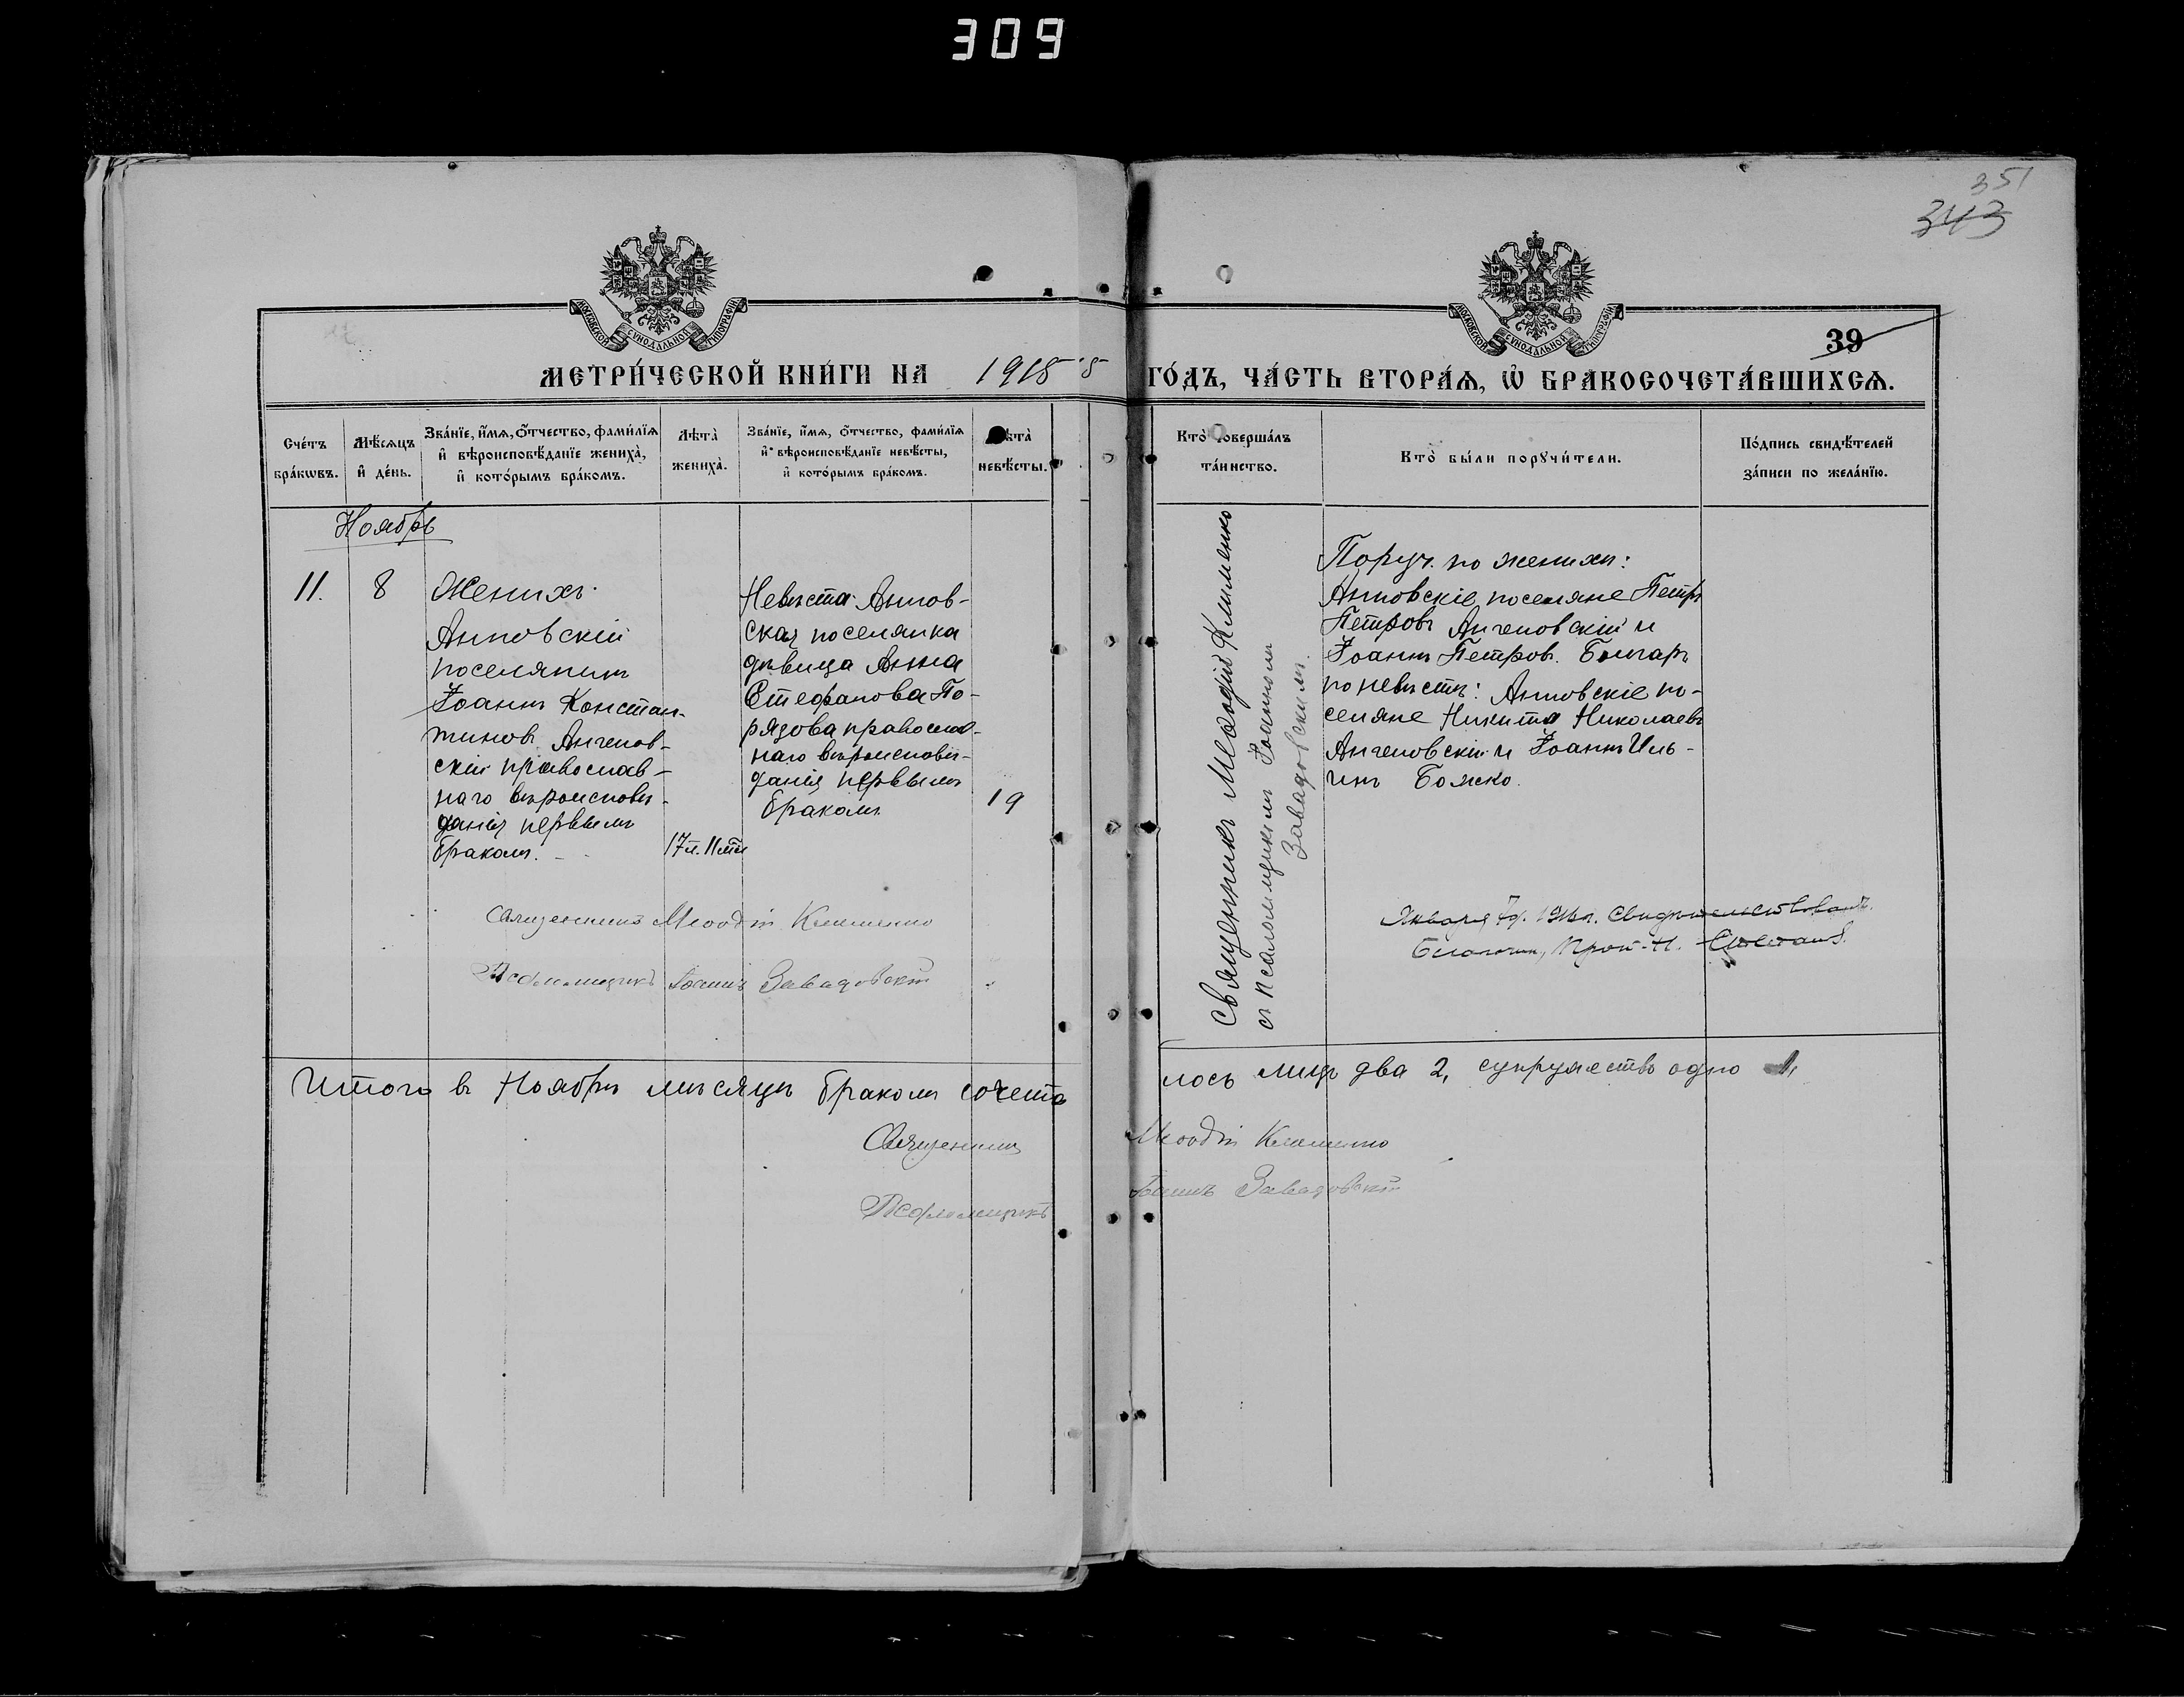 309
351
343
МОСКОВСКОЙ СѴНОДАЛЬНОЙ ТИПОГРАФІИ
МОСКОВСКОЙ СѴНОДАЛЬНОЙ ТИПОГРАФІИ
39
МЕТРИ́ЧЕСКОЙ КНИ́ГИ НА 1915 ГО́ДЪ, ЧА́СТЬ ВТОРА́Ѧ, Ѽ БРАКОСОЧЕТА́ВШИХСѦ.
Сче́тъ бра́кѡвъ.
Мѣ́сѧцъ и҆ де́нь.
Зва́нїе, и҆́мѧ, ѻ҆́тчество, фами́лїѧ и҆ вѣроисповѣ́данїе жениха̀, и҆ кото́рымъ бра́комъ.
Лѣта̀ жениха̀.
Зва́нїе, и҆́мѧ, ѻ҆́тчество, фами́лїѧ и҆ вѣроисповѣ́данїе невѣ́сты, и҆ кото́рымъ бра́комъ.
Лѣта̀ невѣ́сты.
Кто̀ соверша́лъ та́инство.
Кто̀ бы́ли порꙋчи́тели.
По́дпись свидѣ́телей за́писи по жела́нїю.
Ноябрь
11.
8
Женихъ
Анновскій
поселянинъ
Іоаннъ Констан-
тиновъ Ангелов-
скій православ-
наго вѣроисповѣ-
данія первымъ
бракомъ.
17 л. 11 м.
Невѣста Аннов-
ская поселянка
дѣвица Анна
Стефанова По-
рядова православ-
наго вѣроисповѣ-
данія первымъ
бракомъ.
19
Священникъ Меѳодій Клименко
съ псаломщикомъ Іоанномъ
Завадовскимъ.
Поруч. по женихѣ:
Анновскіе поселяне Петръ
Петровъ Ангеловскій и
Іоаннъ Петров. Болгаръ
по невѣстѣ: Анновскіе по-
селяне Никита Николаевъ
Ангеловскій и Іоаннъ Иль-
инъ Божко.
Священникъ Меѳодій Клименко
Псаломщикъ Іоаннъ Завадовскій
Января 7 д. Свидѣтельствовалъ.
Благочин., Прот. Н.
Итого въ Ноябрѣ мѣсяцѣ бракомъ сочета
лось лицъ два 2, супружество одно 1,
Священникъ Меѳодій Клименко
Псаломщикъ Іоаннъ Завадовскій